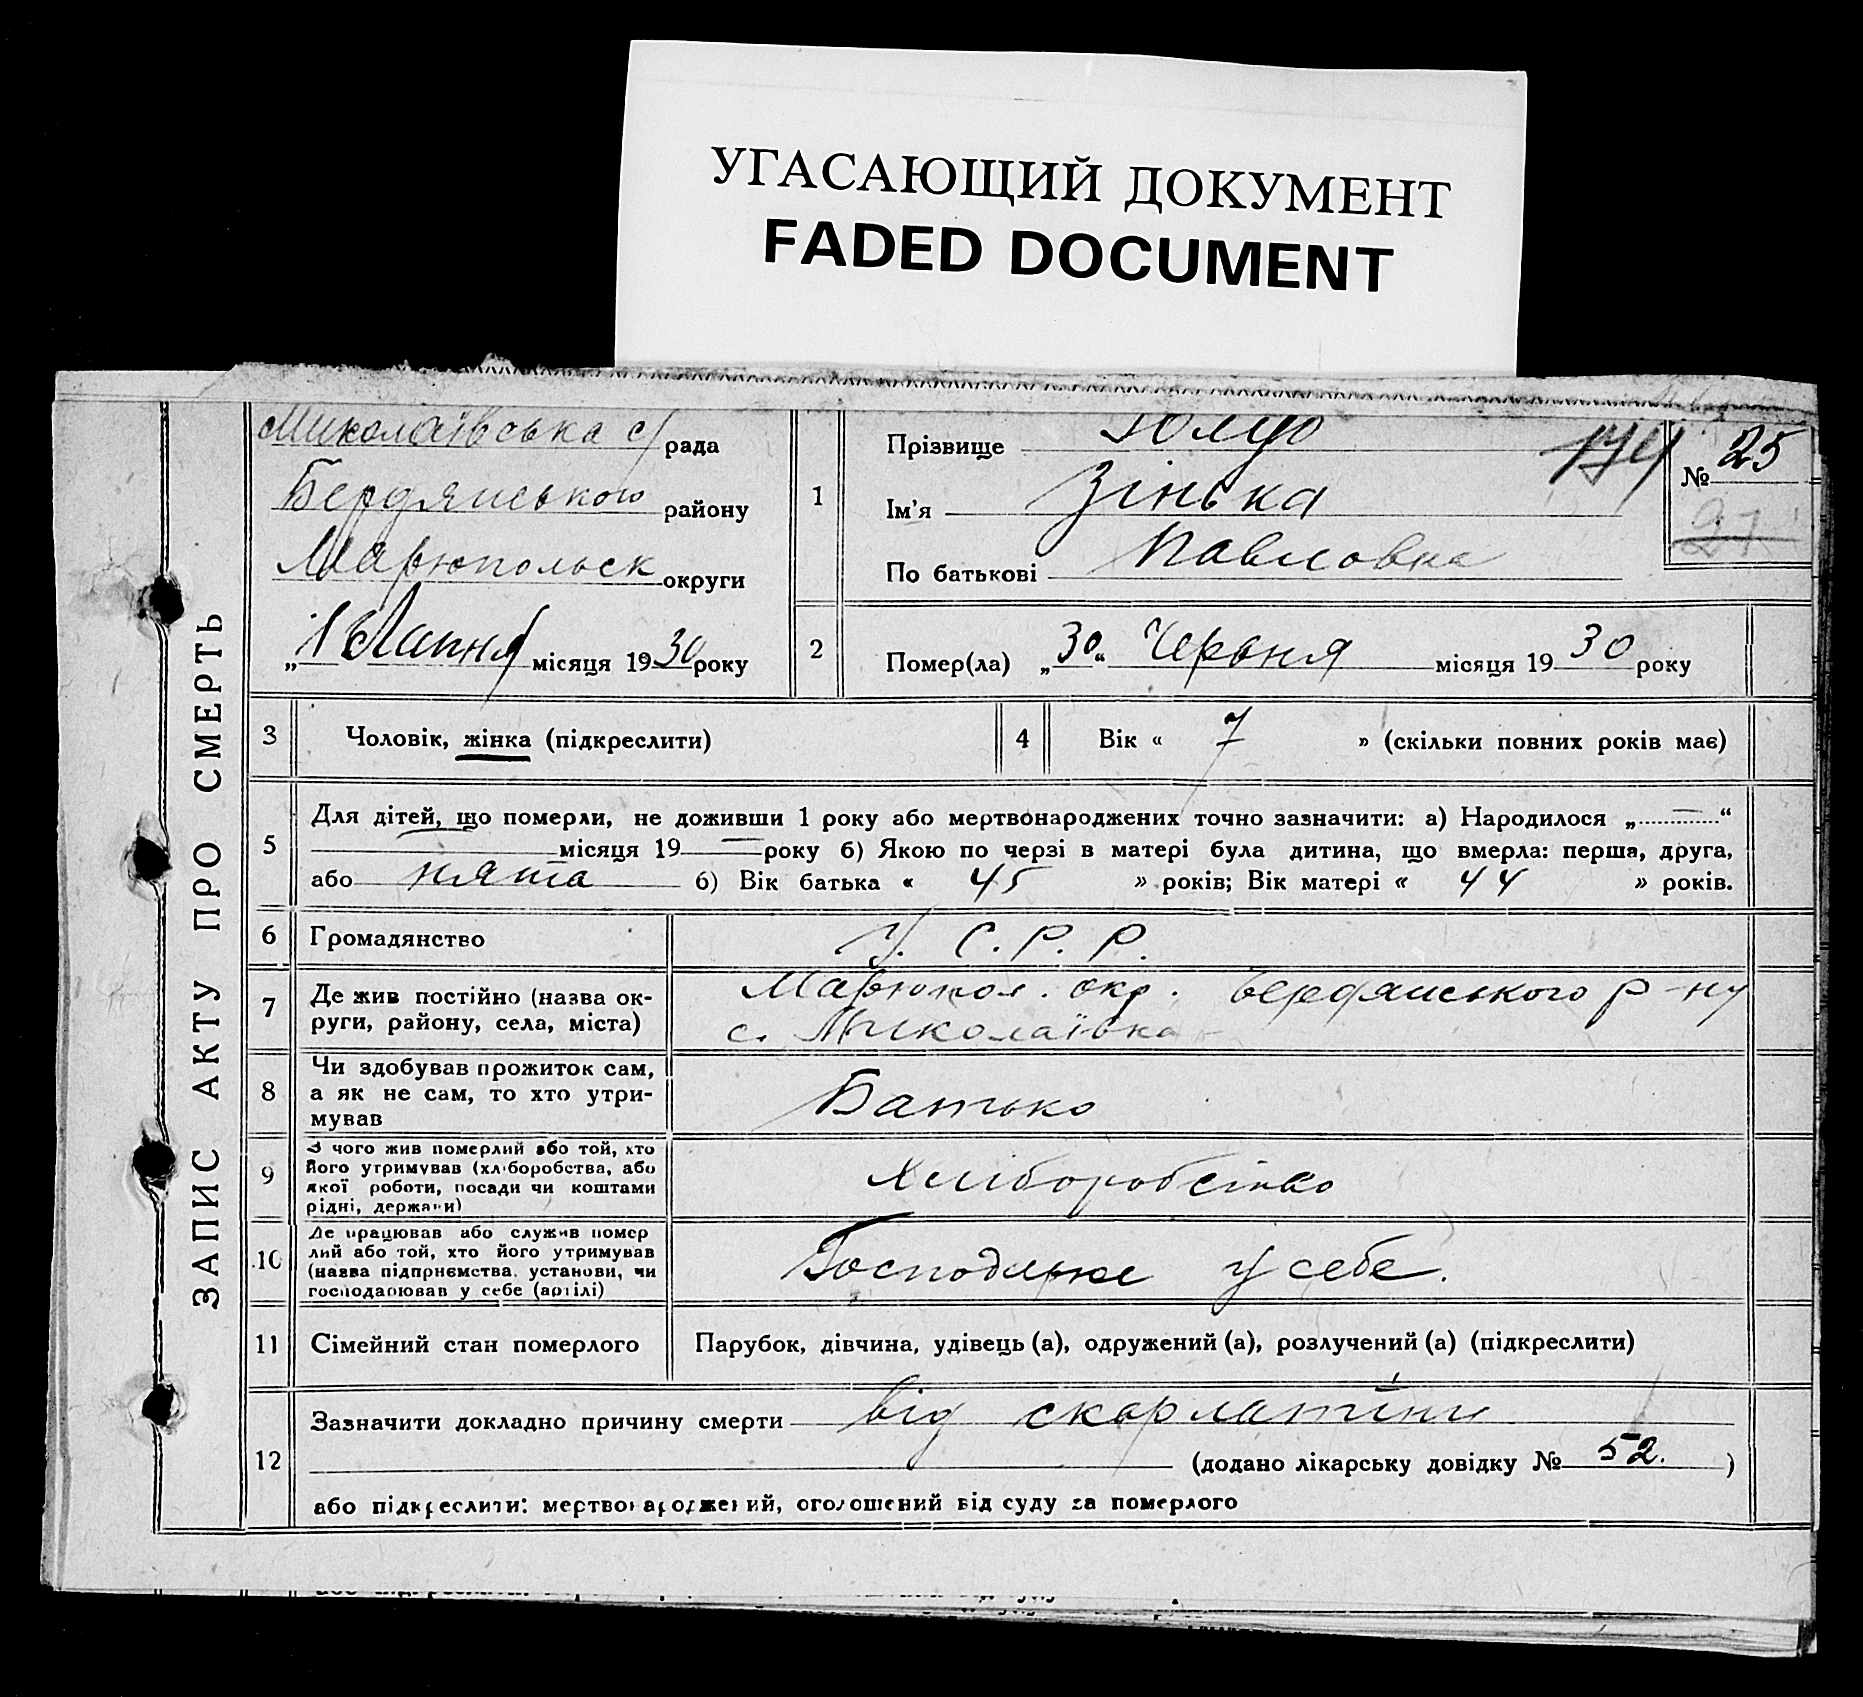 УГАСАЮЩИЙ ДОКУМЕНТ
FADED DOCUMENT
ЗАПИС АКТУ ПРО СМЕРТЬ
Миколаївська с/рада
Бердянського району
Марюпольск округи
„1 Липня місяця 1930 року
1
Прізвище
Ім'я Зінька
По батькові Павловна
174
№ 25
27
2
Помер(ла) „30“ Червня місяця 1930 року
3
Чоловік, жінка (підкреслити)
4
Вік « 7 » (скільки повних років має)
5
Для дітей, що померли, не доживши 1 року або мертвонароджених точно зазначити: а) Народилося „—“
— місяця 19— року б) Якою по черзі в матері була дитина, що вмерла: перша, друга,
або пята б) Вік батька « 45 » років; Вік матері « 44 » років.
6
Громадянство
У. С. Р. Р.
7
Де жив постійно (назва ок-
руги, району, села, міста)
Марюпол. окр. Бердянського р-ну
с. Миколаївка
8
Чи здобував прожиток сам,
а як не сам, то хто утри-
мував
Батько
9
З чого жив померлий або той, хто
його утримував (хліборобства, або
якої роботи, посади чи коштами
рідні, держави)
Хліборобство
10
Де працював або служив помер
лий або той, хто його утримував
(назва підприємства, установи, чи
господарював у себе (артілі)
у себе.
11
Сімейний стан померлого
Парубок, дівчина, удівець (а), одружений (а), розлучений (а) (підкреслити)
12
Зазначити докладно причину смерти від скарлатини
(додано лікарську довідку № 52. )
або підкреслити: мертвонароджений, оголошений від суду за померлого